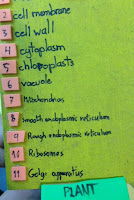 2 cell membrane
3 cell wall
4 cytoplasm
5 chloroplasts
6 vacuole
7 Mitochondrias
8 Smooth endoplasmic reticulum
9 Rough endoplasmic reticulum
10 Ribosomes
11 Golgi apparatus
PLANT